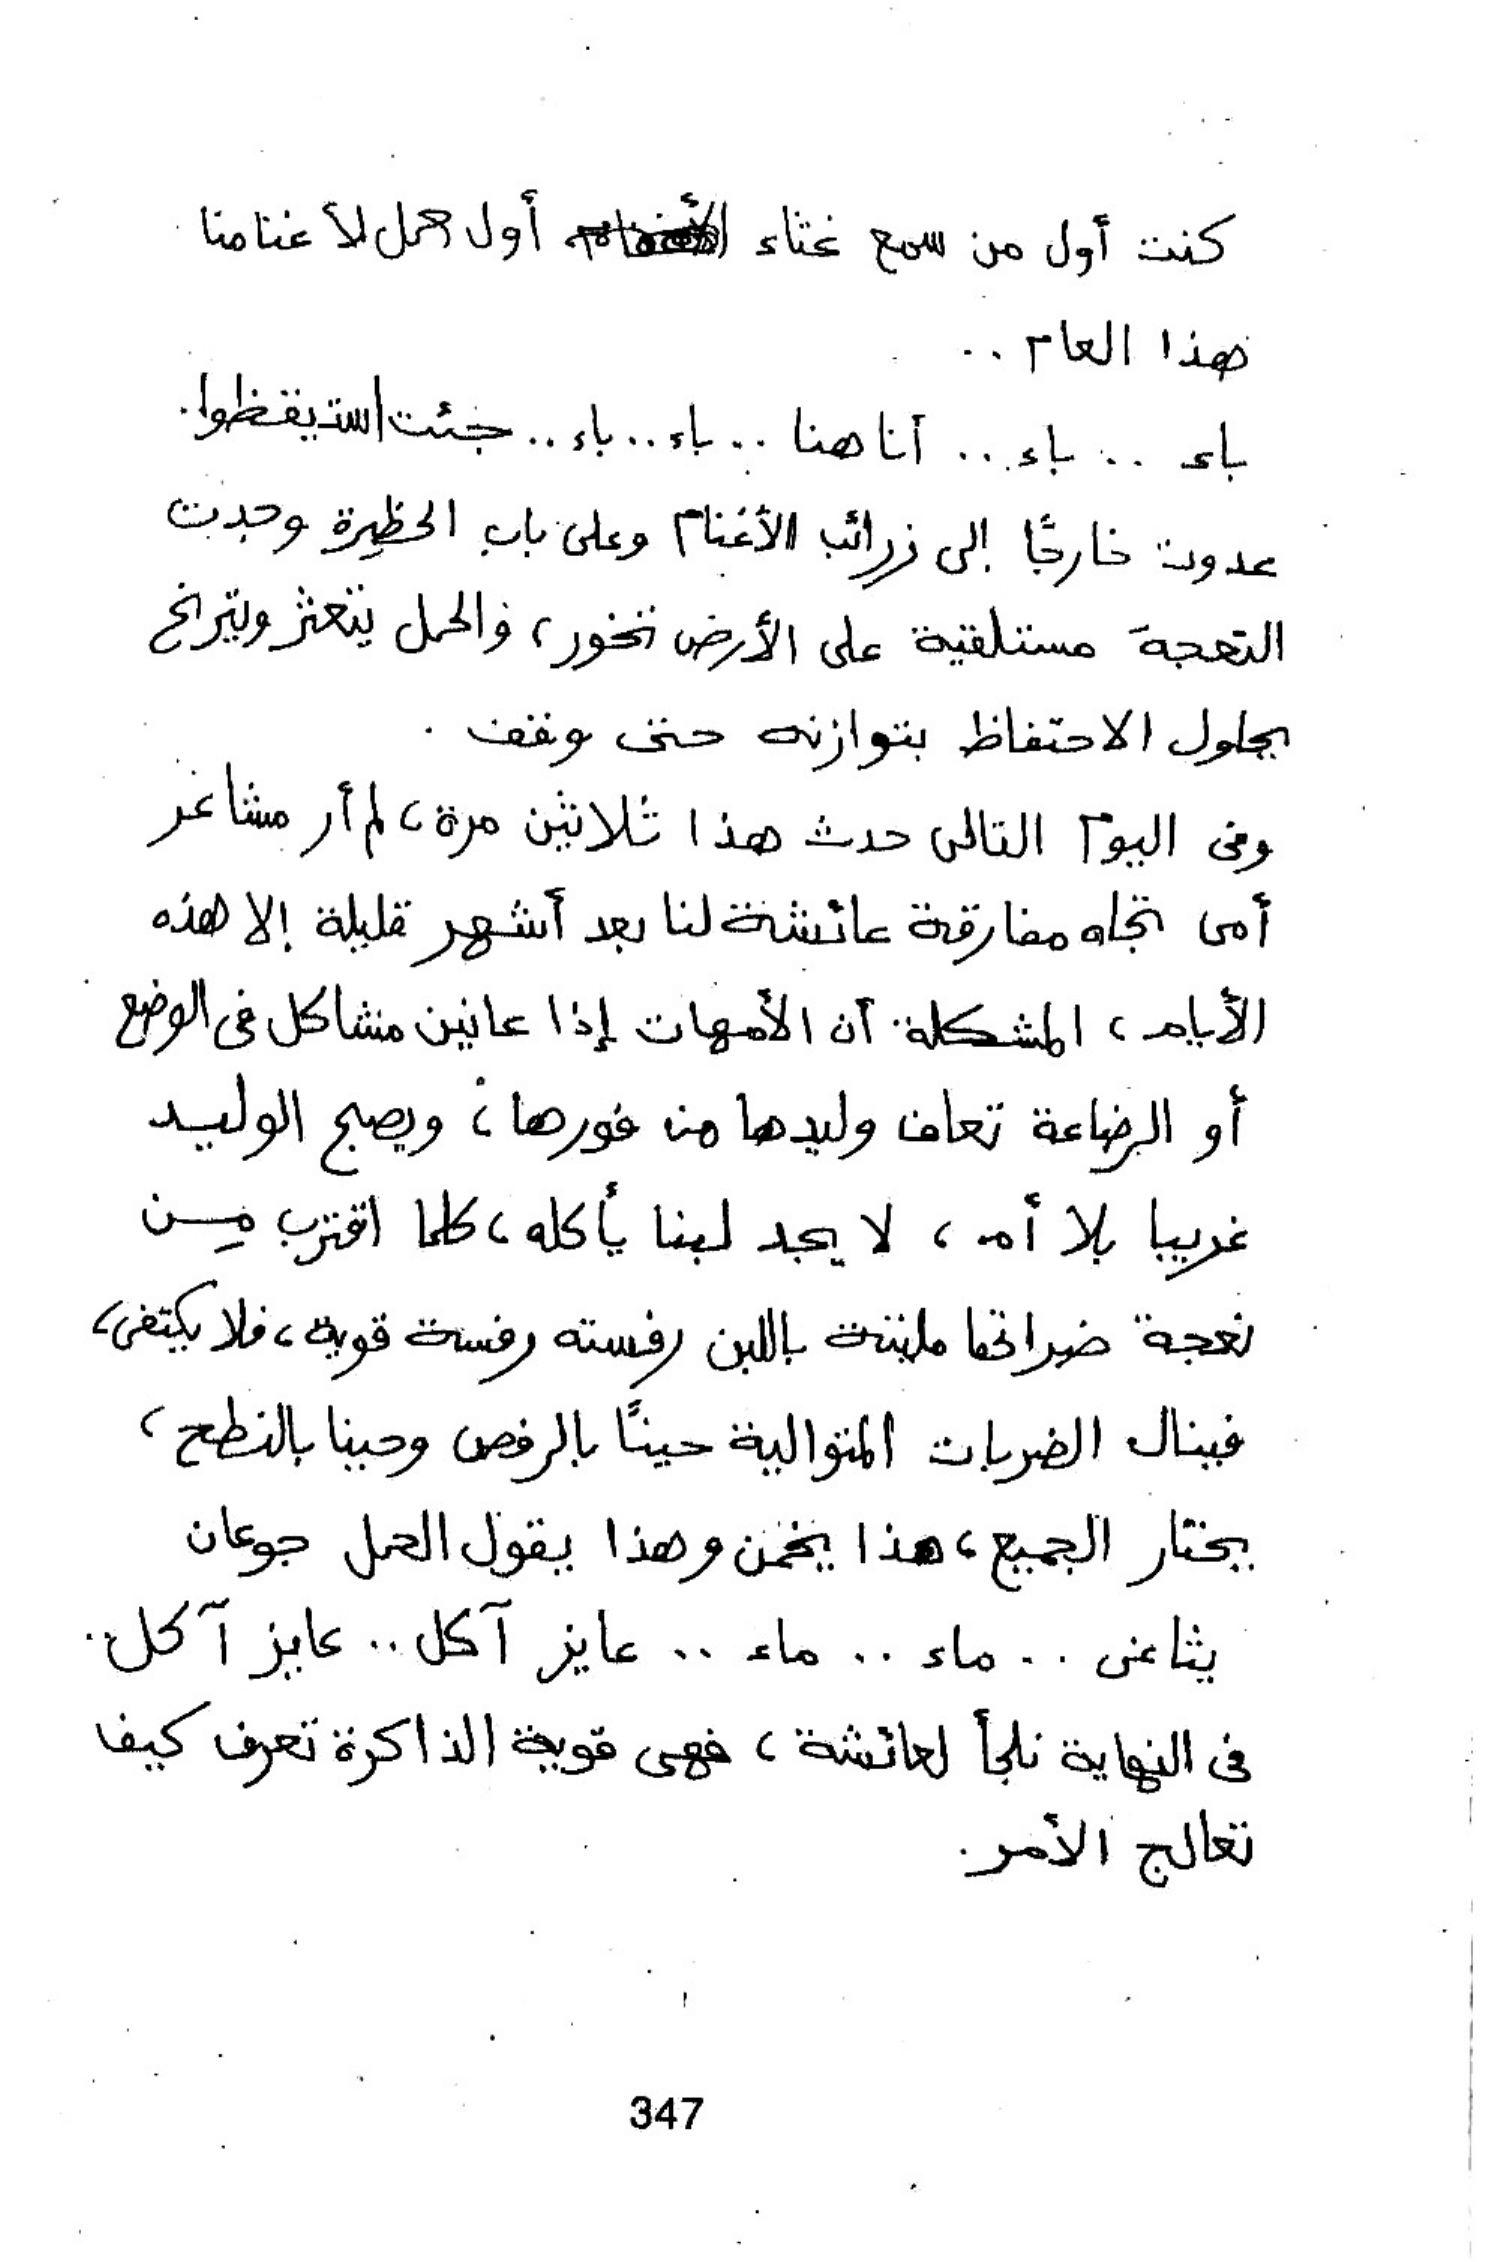 كنت أول من سمع غثاء أول حمل لأغنامنا
هذا العام ..
باء .. باء .. أنا هنا .. باء .. باء .. جئت استيقظوا.
عدوت خارجًا إلى زرائب الأغنام وعلى باب الحظيرة وجدت
النعجة مستلقية على الأرض تخور، والحمل يتعثر ويترنح
يحاول الاحتفاظ بتوازنه حتى وقف .
وفى اليوم التالى حدث هذا ثلاثين مرة، لم أر مشاعر
أمى تجاه مفارقة عائشة لنا بعد أشهر قليلة إلا هذه
الأيام، المشكلة أن الأمهات إذا عانين مشاكل فى الوضع
أو الرضاعة تعاف وليدها من فورها، ويصبح الوليد
غريبا بلا أم، لا يجد لبنا يأكله، كلما اقترب مِن
نعجة ضراتها مليئة باللبن رفسته رفسة قوية، فلا يكتفى،
فينال الضربات المتوالية حينًا بالرفص وحينا بالنطح،
يحتار الجميع، هذا يخمن وهذا يقول الحمل جوعان
يثاغى .. ماء .. ماء .. عايز آكل .. عايز آكل..
فى النهاية نلجأ لعائشة، فهى قوية الذاكرة تعرف كيف
تعالج الأمر.
347